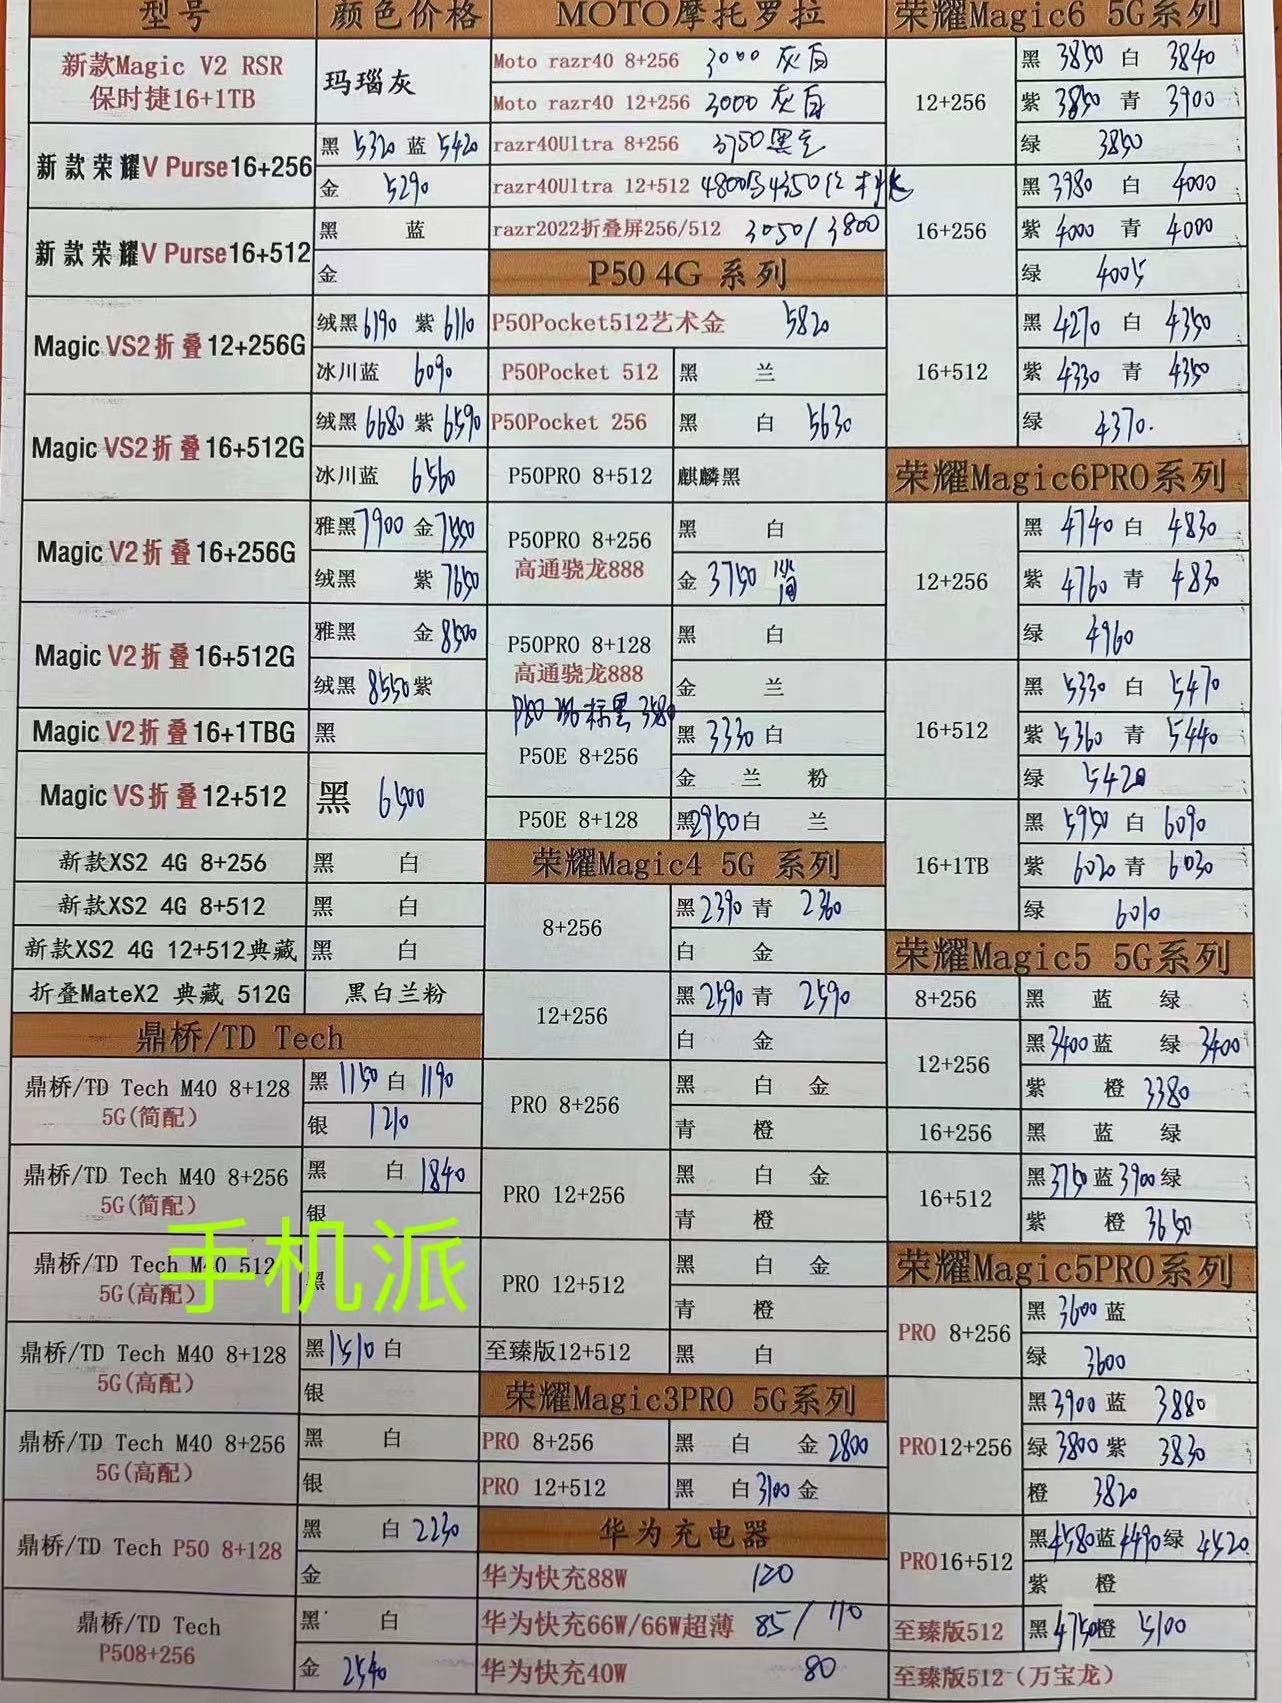 型号 颜色价格
新款Magic V2 RSR
保时捷16+1TB
玛瑙灰
新款荣耀V Purse16+256
黑 5320 蓝 5420
金 5290
新款荣耀V Purse16+512
黑 蓝
金
Magic VS2折叠12+256G
绒黑6190 紫6110
冰川蓝 6090
Magic VS2折叠16+512G
绒黑6680 紫6590
冰川蓝 6560
Magic V2折叠16+256G
雅黑7900 金7550
绒黑 紫7650
Magic V2折叠16+512G
雅黑 金8500
绒黑 8550紫
Magic V2折叠16+1TBG
黑
Magic VS折叠12+512
黑 6500
新款XS2 4G 8+256 黑 白
新款XS2 4G 8+512 黑 白
新款XS2 4G 12+512典藏 黑 白
折叠MateX2 典藏 512G 黑白兰粉
鼎桥/TD Tech
鼎桥/TD Tech M40 8+128
5G(简配)
黑 1150 白 1190
银 1210
鼎桥/TD Tech M40 8+256
5G(简配)
黑 白 1840
银
鼎桥/TD Tech M40 512
5G(高配)
黑
手机派
鼎桥/TD Tech M40 8+128
5G(高配)
黑1510 白
银
鼎桥/TD Tech M40 8+256
5G(高配)
黑 白
银
鼎桥/TD Tech P50 8+128
黑 白 2230
金
鼎桥/TD Tech
P508+256
黑 白
金 2540
MOTO摩托罗拉
Moto razr40 8+256 3000 灰白
Moto razr40 12+256 3000 灰白
razr40Ultra 8+256 3750黑
razr40Ultra 12+512 4800 4350
razr2022折叠屏256/512 3050/3800
P50 4G 系列
P50Pocket512艺术金 5820
P50Pocket 512 黑 兰
P50Pocket 256 黑 白 5630
P50PRO 8+512 麒麟黑
P50PRO 8+256
高通骁龙888
黑 白
金 3750
P50PRO 8+128
高通骁龙888
黑 白
金 兰
P50 256 标黑 3580
P50E 8+256
黑 3330 白
金 兰 粉
P50E 8+128 黑2950白 兰
荣耀Magic4 5G 系列
8+256
黑2390 青 2360
白 金
12+256
黑2590 青 2590
白 金
PRO 8+256
黑 白 金
青 橙
PRO 12+256
黑 白 金
青 橙
PRO 12+512
黑 白 金
青 橙
至臻版12+512 黑 白
荣耀Magic3PRO 5G系列
PRO 8+256 黑 白 金2800
PRO 12+512 黑 白3100金
华为充电器
华为快充88W 120
华为快充66W/66W超薄 85/110
华为快充40W 80
荣耀Magic6 5G系列
12+256
黑 3850 白 3840
紫 3850 青 3900
绿 3850
16+256
黑 3980 白 4000
紫 4000 青 4000
绿 4005
16+512
黑 4270 白 4350
紫 4330 青 4350
绿 4370.
荣耀Magic6PRO系列
12+256
黑 4740 白 4830
紫 4760 青 4830
绿 4960
16+512
黑 5330 白 5470
紫 5360 青 5440
绿 5420
16+1TB
黑 5950 白 6090
紫 6020 青 6030
绿 6010
荣耀Magic5 5G系列
8+256 黑 蓝 绿
12+256
黑3400蓝 绿 3400
紫 橙 3380
16+256 黑 蓝 绿
16+512
黑3750蓝3900绿
紫 橙 3650
荣耀Magic5PRO系列
PRO 8+256
黑 3600 蓝
绿 3600
PRO12+256
黑3900 蓝 3880
绿 3800 紫 3830
橙 3820
PRO16+512
黑4580蓝4490绿 4520
紫 橙
至臻版512 黑4750橙 5100
至臻版512（万宝龙）